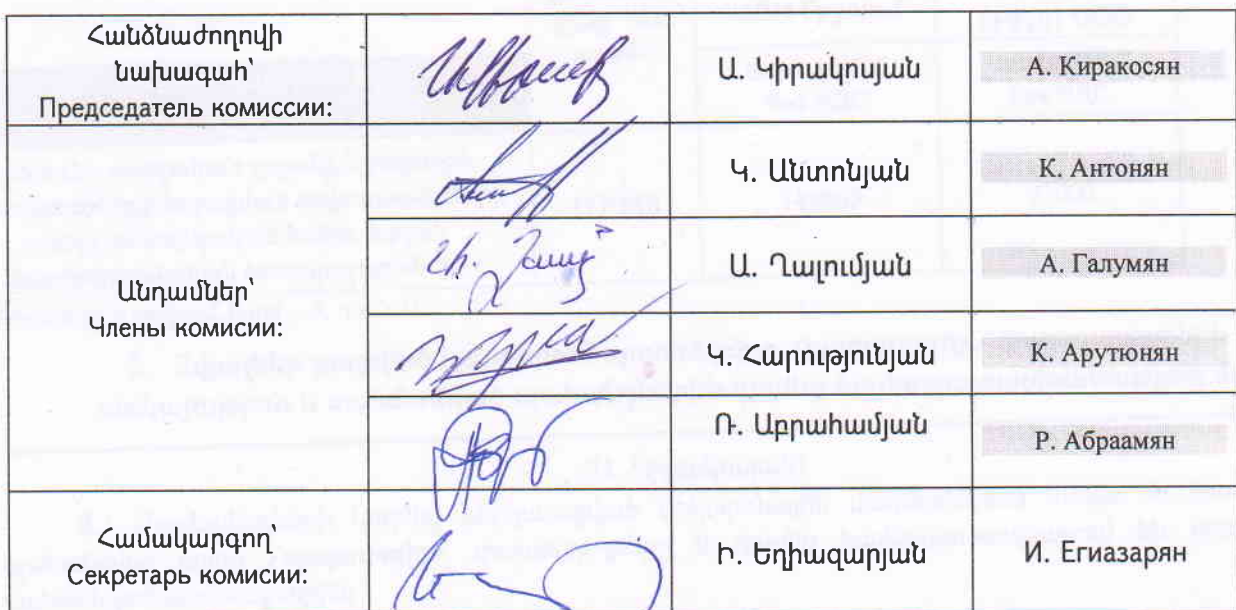 Հանձնաժողովի
նախագահ՝
Председатель комиссии:
Ա. Կիրակոսյան
А. Киракосян
Կ. Անտոնյան
К. Антонян
Անդամներ՝
Члены комисии:
Ա. Ղալումյան
А. Галумян
Կ. Հարությունյան
К. Арутюнян
Ռ. Աբրահամյան
Р. Абраамян
Համակարգող՝
Секретарь комисии:
Ի. Եղիազարյան
И. Егиазарян